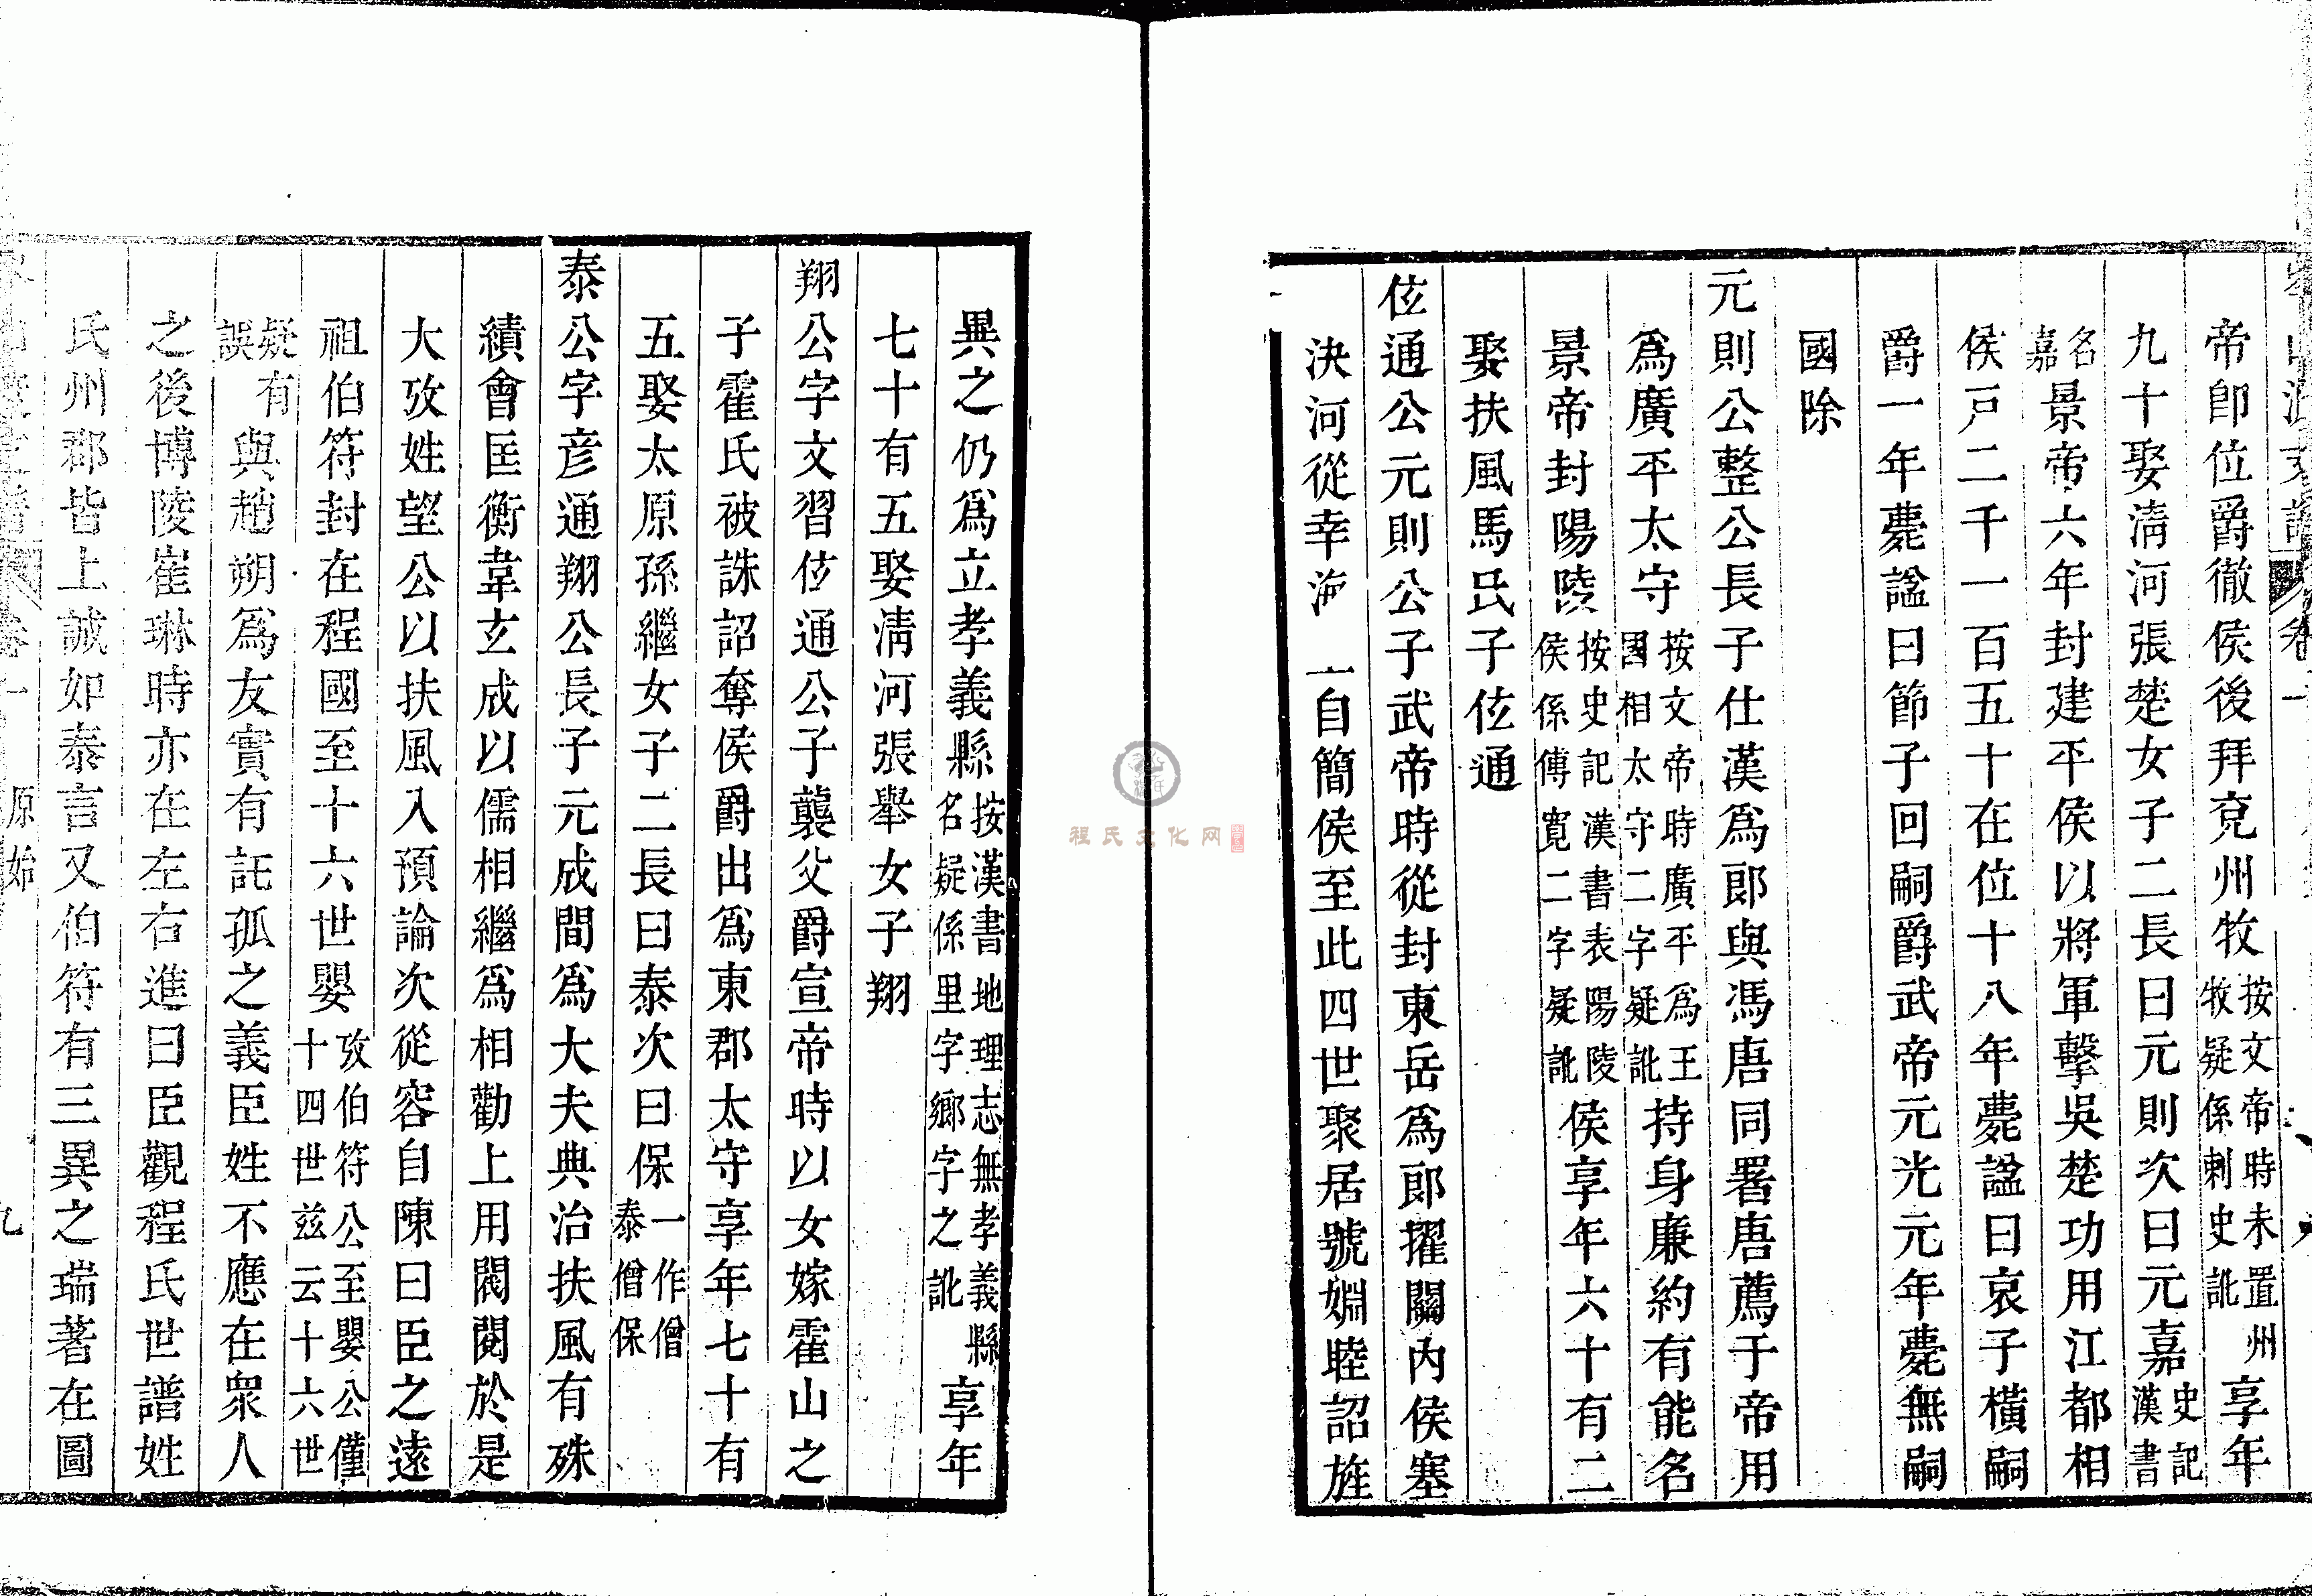 帝即位爵徹侯後拜兗州牧按文帝時未置州牧疑係刺史訛享年
九十娶淸河張楚女子二長曰元則次曰元嘉史記漢書
名嘉景帝六年封建平侯以將軍擊吳楚功用江都相
侯戸二千一百五十在位十八年薨諡曰哀子橫嗣
爵一年薨諡曰節子回嗣爵武帝元光元年薨無嗣
國除
元則公整公長子仕漢爲郎與馮唐同署唐薦于帝用
爲廣平太守按文帝時廣平爲王國相太守二字疑訛持身廉約有能名
景帝封陽陵按史記漢書表陽陵侯係傅寬二字疑訛侯享年六十有二
娶扶風馬氏子伭通
伭通公元則公子武帝時從封東岳爲郎擢關內侯塞
決河從幸海上自簡侯至此四世聚居號婣睦詔旌
異之仍爲立孝義縣按漢書地理志無孝義縣名疑係里字鄉字之訛享年
七十有五娶淸河張舉女子翔
翔公字文習伭通公子襲父爵宣帝時以女嫁霍山之
子霍氏被誅詔奪侯爵出爲東郡太守享年七十有
五娶太原孫繼女子二長曰泰次曰保一作僧泰僧保
泰公字彦通翔公長子元成間爲大夫典治扶風有殊
績會匡衡韋玄成以儒相繼爲相勸上用閥閱於是
大攷姓望公以扶風入預論次從容自陳曰臣之遠
祖伯符封在程國至十六世嬰攷伯符公至嬰公僅十四世茲云十六世
疑有誤與趙朔爲友實有託孤之義臣姓不應在衆人
之後博陵崔琳時亦在左右進曰臣觀程氏世譜姓
氏州郡皆上誠如泰言又伯符有三異之瑞著在圖
卷一
原始
九
程氏文化网